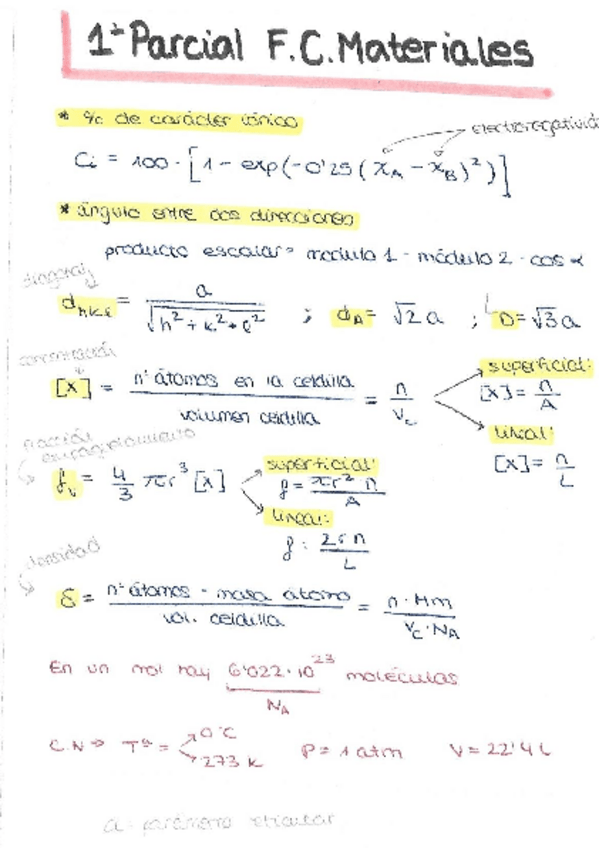 1ᵃ Parcial F.C.Materiales
* % de carácter iónico
electronegativid
Ci = 100 · [1 - exp(-0'25 (χA - χB)²)]
* ángulo entre dos direcciones
producto escalar = modulo 1 · módulo 2 · cos α
diagonal
dhkl = a / √(h² + k² + l²) ; dA = √2 a ; D = √3 a
concentración
[x] = nº átomos en la celdilla / volumen celdilla = n / Vc
superficial:
[x] = n / A
lineal:
[x] = n / L
fracción empaquetamiento
fv = 4/3 πr³ [x]
superficial:
f = πr² n / A
lineal:
f = 2rn / L
densidad
δ = nº átomos · masa átomo / vol. celdilla = n · Mm / Vc · NA
En un mol hay 6'022·10²³ moléculas
NA
C.N → Tª = 0°C
273 K
P = 1 atm
V = 22'4 L
a = parámetro reticular